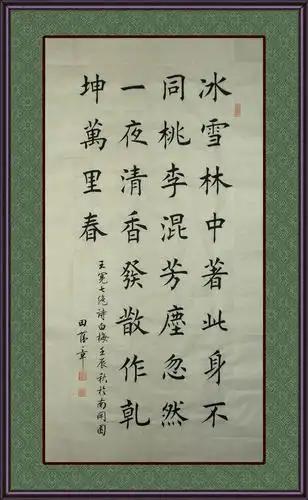 冰雪林中著此身不
同桃李混芳塵忽然
一夜清香發散作乾
坤萬里春
王冕七絕詩白梅壬辰秋於南開園
田蘊章